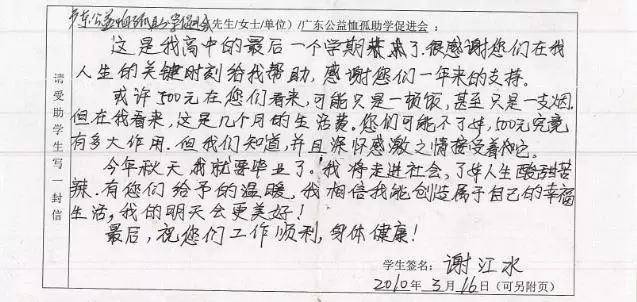 广东公益恤孤助学促进会(先生/女士/单位)/广东公益恤孤助学促进会:
这是我高中的最后一个学期来了.很感谢您们在我
人生的关键时刻给我帮助,感谢您们一年来的支持。
或许500元在您们看来,可能只是一顿饭,甚至只是一支烟.
但在我看来,这是几个月的生活费。您们可能不了解,500元究竟
有多大作用.但我们知道,并且深怀感激之情接受着它。
今年秋天我就要毕业了。我将走进社会,了解人生酸甜苦
辣.有您们给予的温暖,我相信我能创造属于自己的幸福
生活,我的明天会更美好!
最后,祝您们工作顺利,身体健康!
请受助学生写一封信
学生签名:谢江水
2010年3月16日(可另附页)